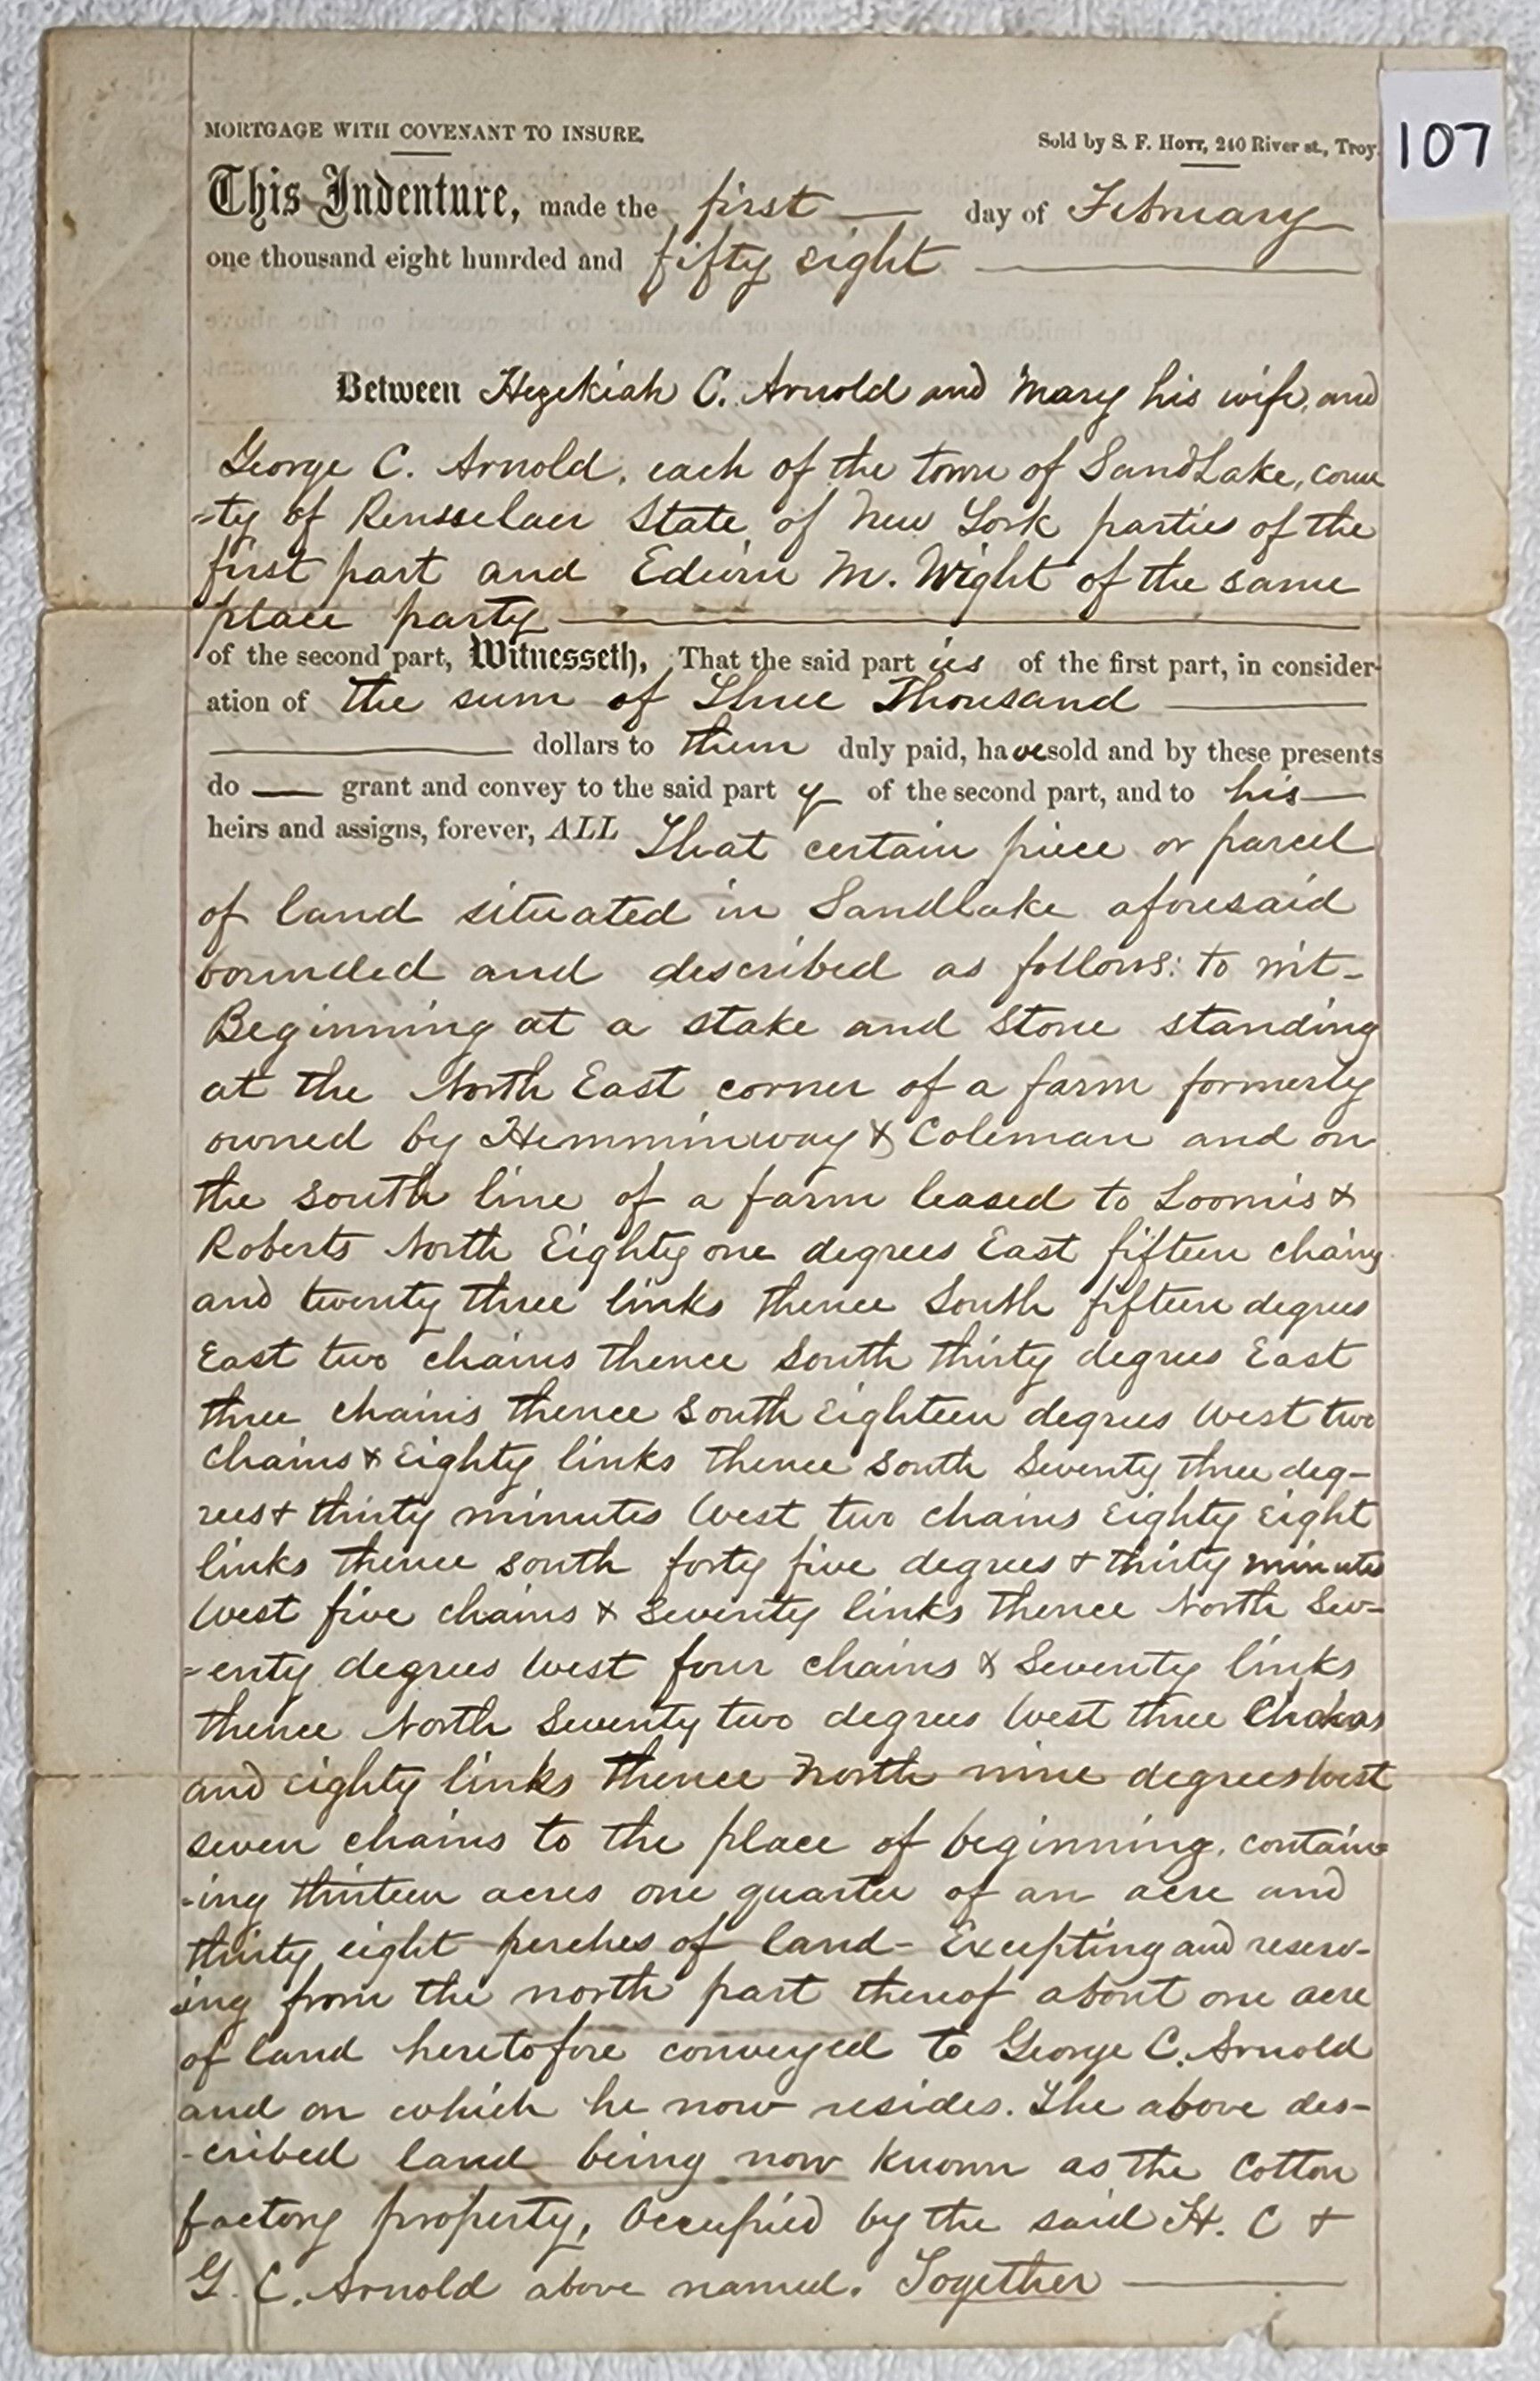 MORTGAGE WITH COVENANT TO INSURE.
Sold by S. F. Hoyt, 240 River st., Troy.
107
This Indenture, made the first day of February
one thousand eight hunrded and fifty eight
Between Hezekiah C. Arnold and Mary his wife, and
George C. Arnold, each of the town of SandLake, coun
=ty of Rensselaer State of New York parties of the
first part and Edwin M. Wight of the same
place party
of the second part, Witnesseth, That the said part ies of the first part, in consider-
ation of the sum of Three Thousand
dollars to them duly paid, have sold and by these presents
do grant and convey to the said part y of the second part, and to his
heirs and assigns, forever, ALL That certain piece or parcel
of land situated in Sandlake aforesaid
bounded and described as follows: to wit-
Beginning at a stake and stone standing
at the North East corner of a farm formerly
owned by Hemminway & Coleman and on
the south line of a farm leased to Loomis &
Roberts North Eighty one degrees East fifteen chains
and twenty three links thence South fifteen degrees
East two chains thence South thirty degrees East
three chains thence south Eighteen degrees West two
chains & Eighty links thence south Seventy three deg-
rees & thirty minutes West two chains Eighty Eight
links thence south forty five degrees & thirty minutes
West five chains & seventy links thence North Sev-
=enty degrees West four chains & Seventy links
thence North Seventy two degrees West three Chains
and eighty links thence North nine degrees West
seven chains to the place of beginning, contain=
-ing thirteen acres one quarter of an acre and
thirty eight perches of land - Excepting and reserv-
ing from the north part thereof about one acre
of land heretofore conveyed to George C. Arnold
and on which he now resides. The above des-
-cribed land being now known as the Cotton
factory property, Occupied by the said H. C &
G. C. Arnold above named. Together